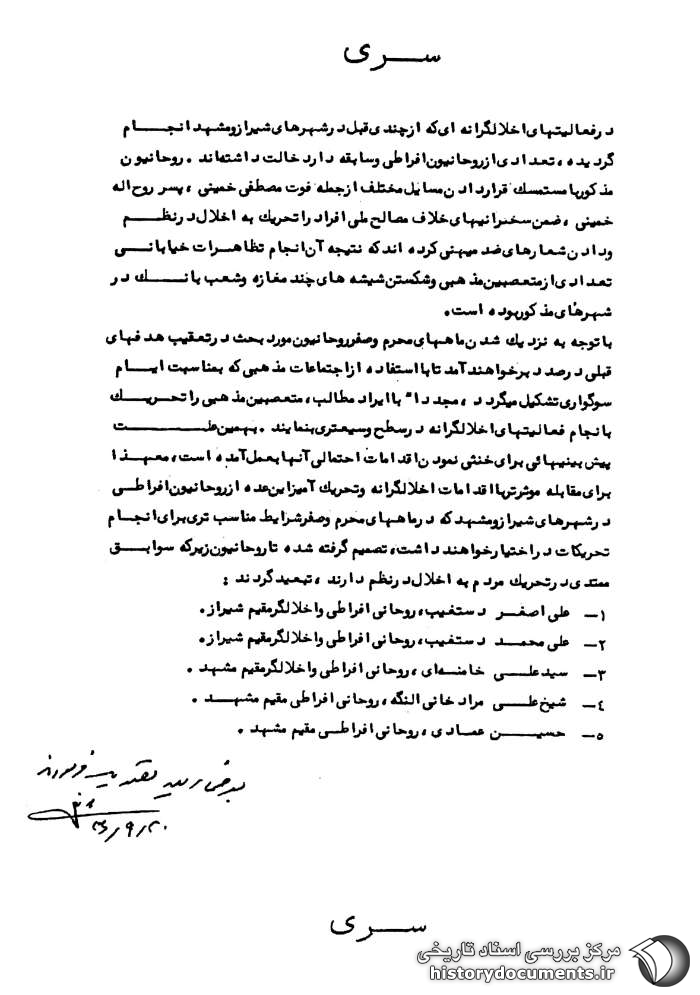 سری
در فعالیتهای اخلالگرانه ای که از چندی قبل در شهرهای شیراز و مشهد انجام
گردیده، تعدادی از روحانیون افراطی و سابقه دار دخالت داشته‌اند. روحانیون
مذکور با مستمسک قرار دادن مسایل مختلف از جمله فوت مصطفی خمینی، پسر روح اله
خمینی، ضمن سخنرانیهای خلاف مصالح ملی افراد را تحریک به اخلال در نظم
و دادن شعارهای ضد میهنی کرده اند که نتیجه آن انجام تظاهرات خیابانی
تعدادی از متعصبین مذهبی و شکستن شیشه های چند مغازه و شعب بانک در
شهرهای مذکور بوده است.
با توجه به نزدیک شدن ماههای محرم و صفر روحانیون مورد بحث در تعقیب هدفهای
قبلی درصدد برخواهند آمد تا با استفاده از اجتماعات مذهبی که بمناسبت ایام
سوگواری تشکیل میگردد، مجدداً با ایراد مطالب، متعصبین مذهبی را تحریک
بانجام فعالیتهای اخلالگرانه در سطح وسیعتری بنمایند. بهمین علت
پیش بینیهائی برای خنثی نمودن اقدامات احتمالی آنها بعمل آمده است، معهذا
برای مقابله موثرتر با اقدامات اخلالگرانه و تحریک آمیز این عده از روحانیون افراطی
در شهرهای شیراز و مشهد که در ماههای محرم و صفر شرایط مناسب تری برای انجام
تحریکات در اختیار خواهند داشت، تصمیم گرفته شده تا روحانیون زیر که سوابق
ممتدی در تحریک مردم به اخلال در نظم دارند، تبعید گردند:
۱ـ علی اصغر دستغیب، روحانی افراطی و اخلالگر مقیم شیراز.
۲ـ علی محمد دستغیب، روحانی افراطی و اخلالگر مقیم شیراز.
۳ـ سید علی خامنه‌ای، روحانی افراطی و اخلالگر مقیم مشهد.
۴ـ شیخ علی مراد خانی النگه، روحانی افراطی مقیم مشهد.
۵ـ حسین عمادی، روحانی افراطی مقیم مشهد.
۳۶/۹/۲۰
سری
مرکز بررسی اسناد تاریخی
historydocuments.ir